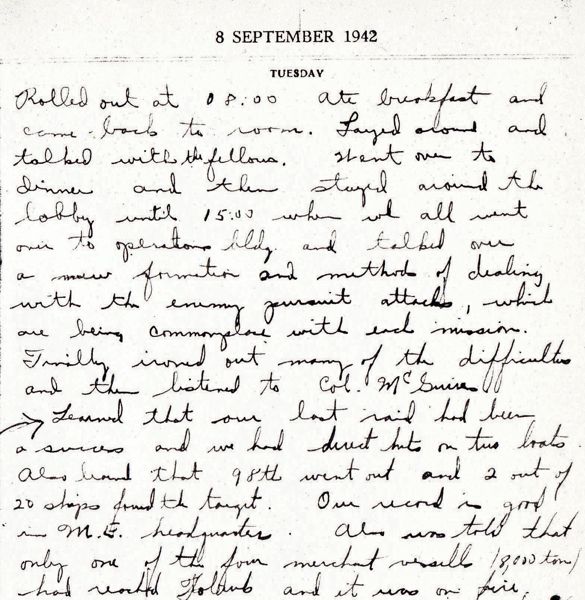 8 SEPTEMBER 1942
TUESDAY
Rolled out at 08:00 Ate breakfast and
came back to room. Layed around and
talked with the fellows. Went over to
dinner and then stayed around the
lobby until 15:00 when we all went
over to operations bldg. and talked over
a new formation and methods of dealing
with the enemy pursuit attacks, which
are being commonplace with each mission.
Finally ironed out many of the difficulties
and then listened to Col. McGuire
Learned that our last raid had been
a success and we had direct hits on two boats.
Also learned that 98th went out and 2 out of
20 ships found the target. Our record is good
in M.E. headquarters. Also was told that
only one of the four merchant vessells (8,000 ton)
had reached and it was on fire,